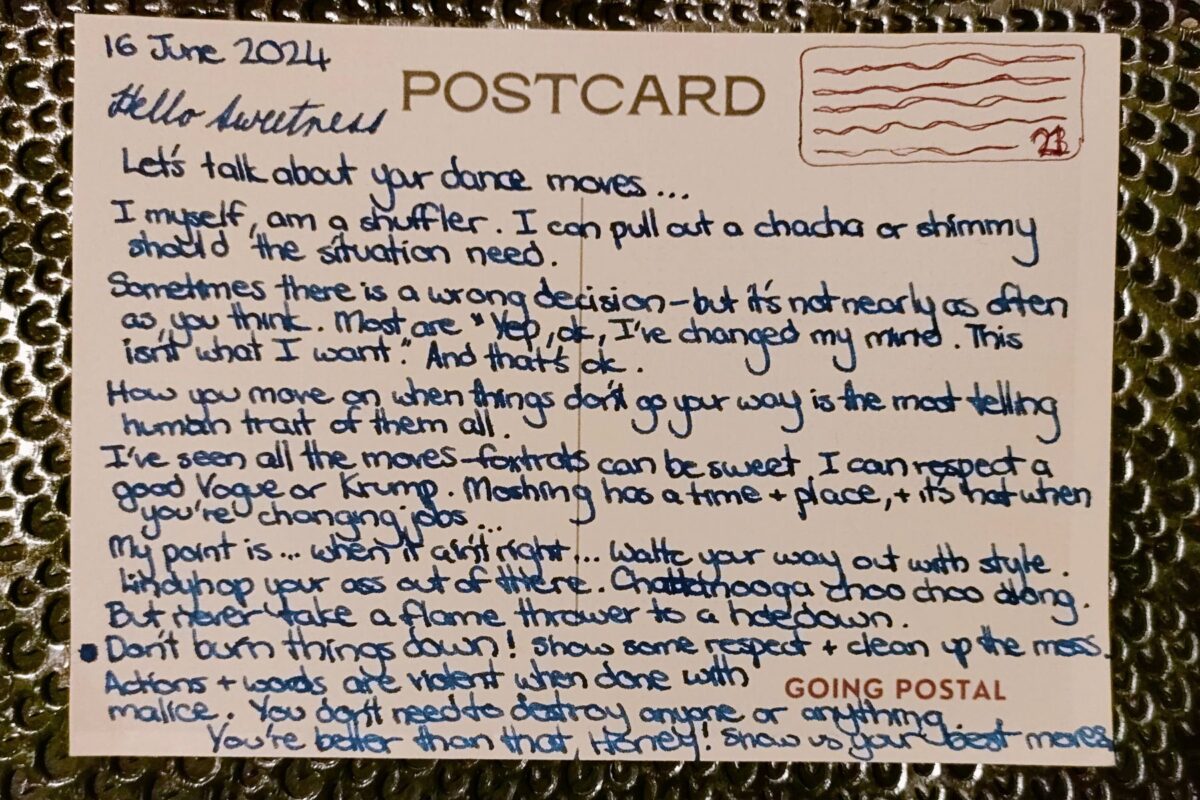 16 June 2024
POSTCARD
Hello Sweetness
Let's talk about your dance moves...
I myself, am a shuffler. I can pull out a chacha or shimmy
should the situation need.
Sometimes there is a wrong decision - but it's not nearly as often
as you think. Most are "Yep, ok, I've changed my mind. This
isn't what I want." And that's ok.
How you move on when things don't go your way is the most telling
human trait of them all.
I've seen all the moves - foxtrots can be sweet, I can respect a
good Vogue or Krump. Moshing has a time + place, + it's not when
you're changing jobs...
My point is... when it ain't right... Waltz your way out with style.
Lindyhop your ass out of there. Chattanooga choo choo along.
But never take a flame thrower to a hoedown.
Don't burn things down! Show some respect + clean up the mess.
Actions + words are violent when done with
GOING POSTAL
malice. You don't need to destroy anyone or anything.
You're better than that, Honey! Show us your best moves